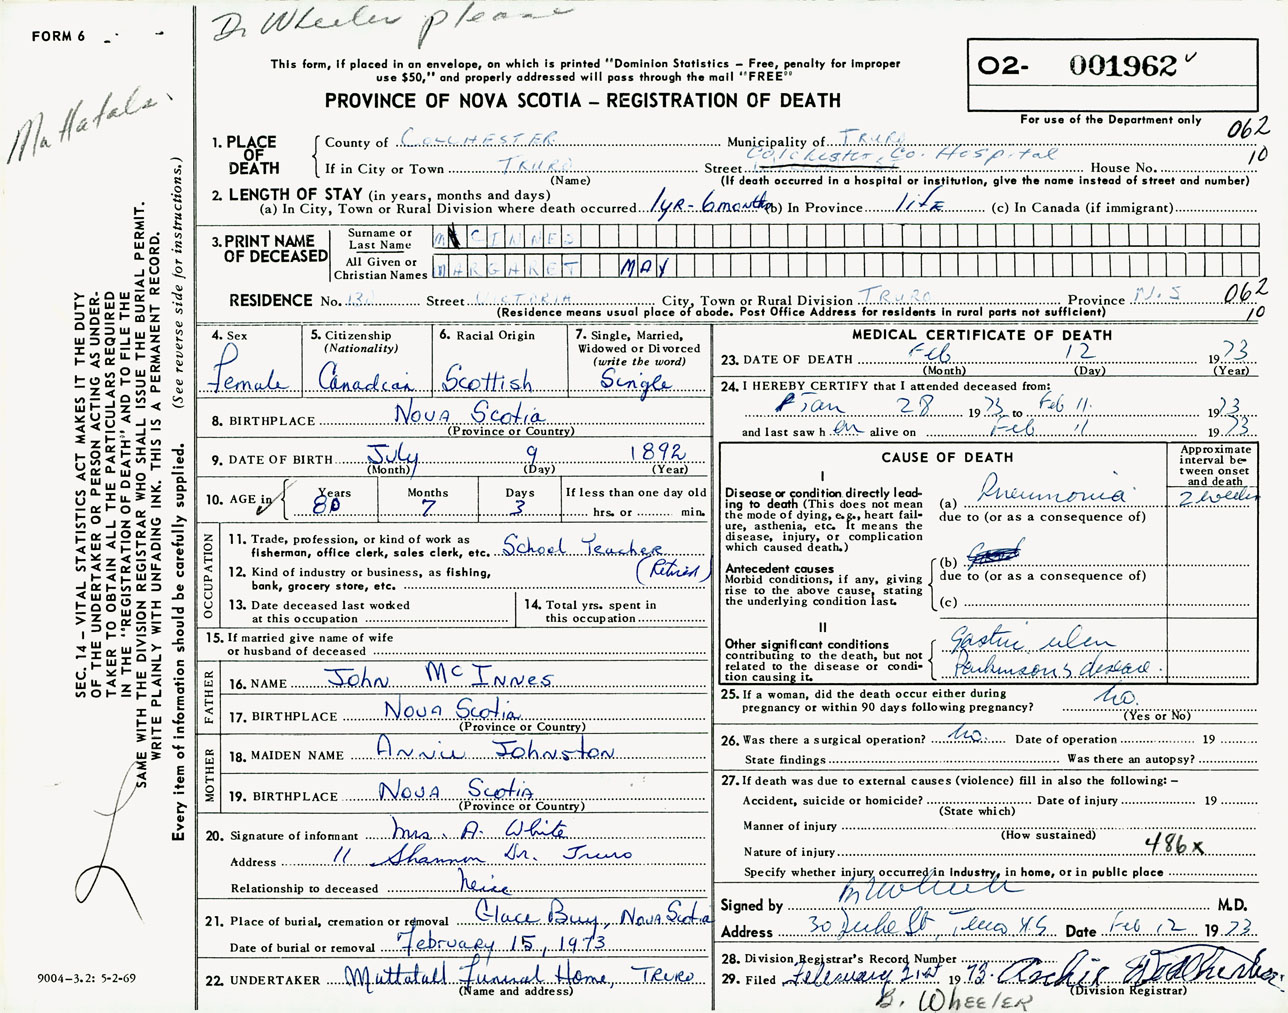 FORM 6
Dr Wheeler please
This form, if placed in an envelope, on which is printed "Dominion Statistics – Free, penalty for improper
use $50," and properly addressed will pass through the mail "FREE"
PROVINCE OF NOVA SCOTIA – REGISTRATION OF DEATH
O2- 001962
For use of the Department only
062
10
Mattatals
SEC. 14 – VITAL STATISTICS ACT MAKES IT THE DUTY
OF THE UNDERTAKER OR PERSON ACTING AS UNDER-
TAKER TO OBTAIN ALL THE PARTICULARS REQUIRED
IN THE "REGISTRATION OF DEATH" AND TO FILE THE
SAME WITH THE DIVISION REGISTRAR WHO SHALL ISSUE THE BURIAL PERMIT.
WRITE PLAINLY WITH UNFADING INK. THIS IS A PERMANENT RECORD.
Every item of information should be carefully supplied. (See reverse side for instructions.)
1. PLACE OF DEATH
County of COLCHESTER Municipality of TRURO
If in City or Town TRURO Street Colchester Co. Hospital House No.
(Name) (If death occurred in a hospital or institution, give the name instead of street and number)
2. LENGTH OF STAY (in years, months and days)
(a) In City, Town or Rural Division where death occurred 1yr - 6 months (b) In Province life (c) In Canada (if immigrant)
3. PRINT NAME OF DECEASED
Surname or Last Name McINNES
All Given or Christian Names MARGARET MAY
RESIDENCE No. 130 Street VICTORIA City, Town or Rural Division TRURO Province N.S 062
(Residence means usual place of abode. Post Office Address for residents in rural parts not sufficient) 10
4. Sex Female
5. Citizenship (Nationality) Canadian
6. Racial Origin Scottish
7. Single, Married, Widowed or Divorced (write the word) Single
8. BIRTHPLACE Nova Scotia
(Province or Country)
9. DATE OF BIRTH July 9 1892
(Month) (Day) (Year)
10. AGE in Years 80 Months 7 Days 3 If less than one day old hrs. or min.
OCCUPATION
11. Trade, profession, or kind of work as
fisherman, office clerk, sales clerk, etc. School Teacher
12. Kind of industry or business, as fishing, (Retired)
bank, grocery store, etc.
13. Date deceased last worked
at this occupation
14. Total yrs. spent in
this occupation
15. If married give name of wife
or husband of deceased
FATHER
16. NAME John McInnes
17. BIRTHPLACE Nova Scotia
(Province or Country)
MOTHER
18. MAIDEN NAME Annie Johnston
19. BIRTHPLACE Nova Scotia
(Province or Country)
20. Signature of informant Mrs. A. White
Address 11 Shannon Dr. Truro
Relationship to deceased Neice
21. Place of burial, cremation or removal Glace Bay, Nova Scotia
Date of burial or removal February 15, 1973
22. UNDERTAKER Mattatall Funeral Home, Truro
(Name and address)
9004-3.2: 5-2-69
MEDICAL CERTIFICATE OF DEATH
23. DATE OF DEATH Feb 12 1973
(Month) (Day) (Year)
24. I HEREBY CERTIFY that I attended deceased from:
Jan 28 1973 to Feb 11 1973
and last saw h er alive on Feb 11 1973
CAUSE OF DEATH
Approximate interval between onset and death
I
Disease or condition directly lead-
ing to death (This does not
mean the mode of dying, e.g., heart fail-
ure, asthenia, etc. It means the
disease, injury, or complication
which caused death.)
(a) Pneumonia 2 weeks
due to (or as a consequence of)
Antecedent causes
Morbid conditions, if any, giving
rise to the above cause, stating
the underlying condition last.
(b)
due to (or as a consequence of)
(c)
II
Other significant conditions
contributing to the death, but not
related to the disease or condi-
tion causing it.
Gastric ulcer
Parkinson's disease.
25. If a woman, did the death occur either during
pregnancy or within 90 days following pregnancy? No.
(Yes or No)
26. Was there a surgical operation? No. Date of operation 19
State findings Was there an autopsy?
27. If death was due to external causes (violence) fill in also the following: –
Accident, suicide or homicide? Date of injury 19
(State which)
Manner of injury
(How sustained)
Nature of injury 486x
Specify whether injury occurred in industry, in home, or in public place
Signed by B Wheeler M.D.
Address 30 Duke St, Truro N.S Date Feb 12 1973
28. Division Registrar's Record Number
29. Filed February 21st 1973 Archie
(Division Registrar)
B. WHEELER